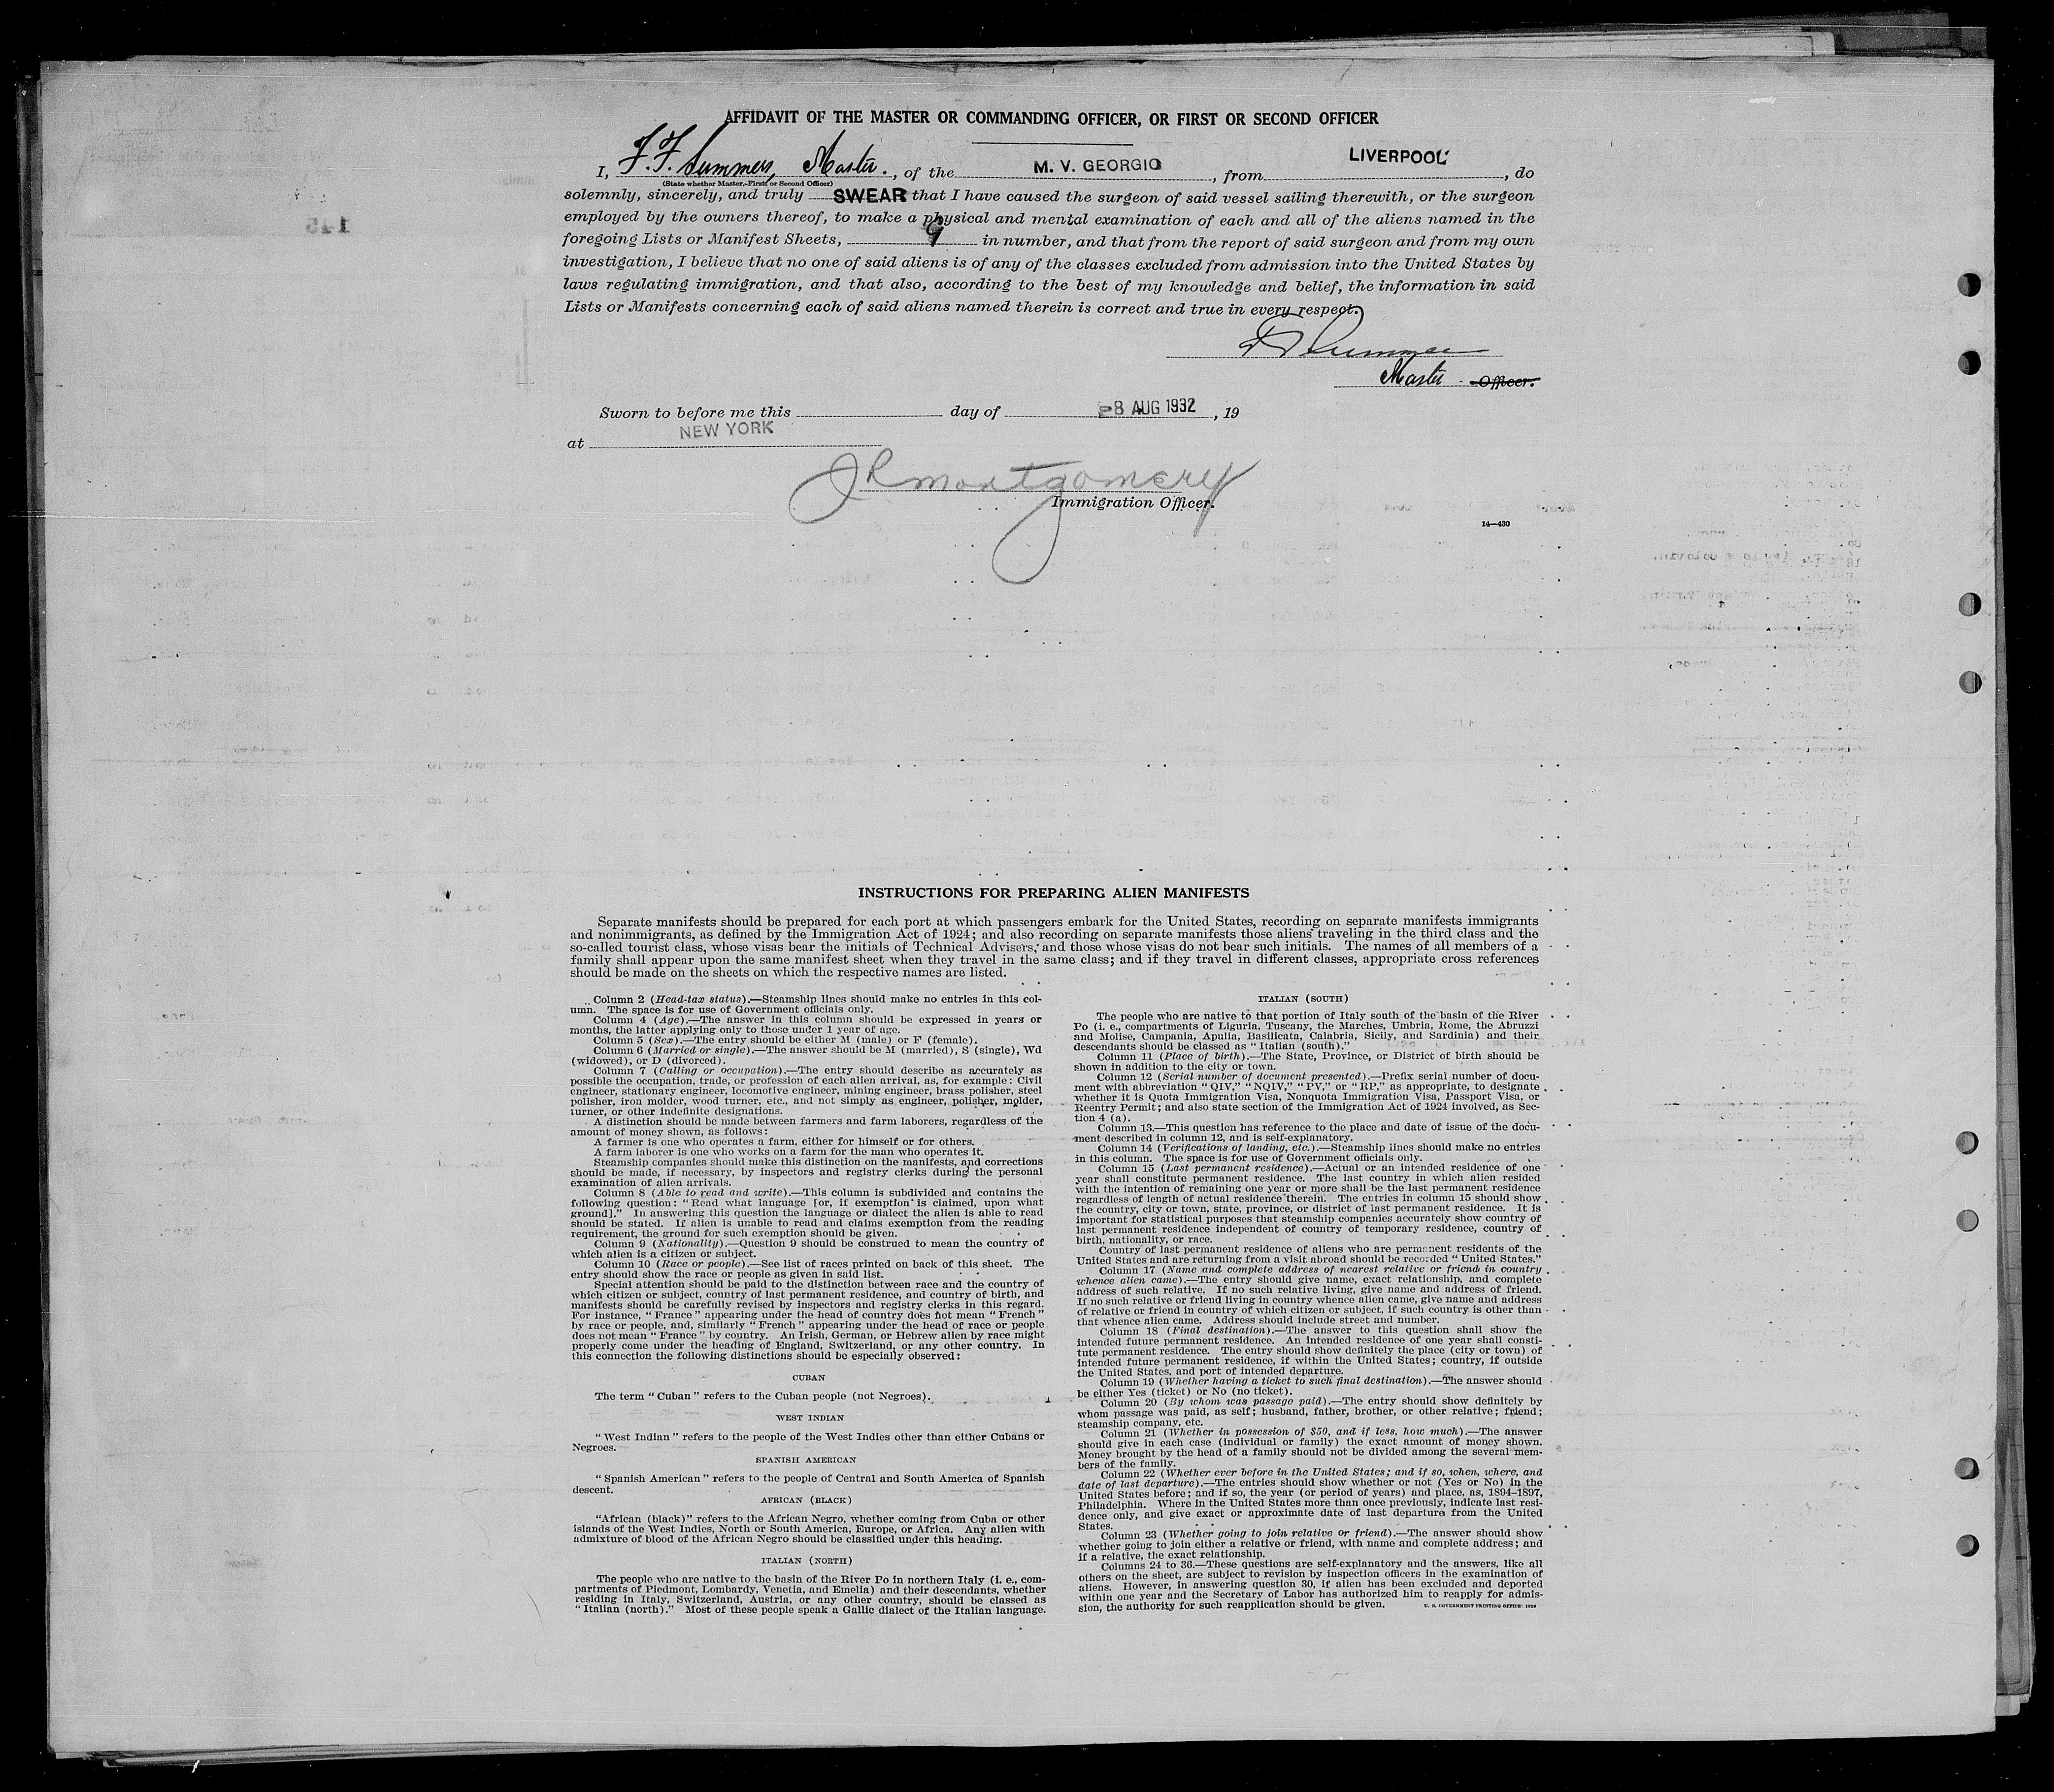 AFFIDAVIT OF THE MASTER OR COMMANDING OFFICER, OR FIRST OR SECOND OFFICER
I, F. F. Summers, Master., of the M. V. GEORGIC, from LIVERPOOL, do
(State whether Master, First, or Second Officer)
solemnly, sincerely, and truly SWEAR that I have caused the surgeon of said vessel sailing therewith, or the surgeon
employed by the owners thereof, to make a physical and mental examination of each and all of the aliens named in the
foregoing Lists or Manifest Sheets, 9 in number, and that from the report of said surgeon and from my own
investigation, I believe that no one of said aliens is of any of the classes excluded from admission into the United States by
laws regulating immigration, and that also, according to the best of my knowledge and belief, the information in said
Lists or Manifests concerning each of said aliens named therein is correct and true in every respect.
F F Summers
Master Officer.
Sworn to before me this day of 8 AUG 1932, 19
at NEW YORK
J R Montgomery
Immigration Officer.
14—430
INSTRUCTIONS FOR PREPARING ALIEN MANIFESTS
Separate manifests should be prepared for each port at which passengers embark for the United States, recording on separate manifests immigrants
and nonimmigrants, as defined by the Immigration Act of 1924; and also recording on separate manifests those aliens traveling in the third class and the
so-called tourist class, whose visas bear the initials of Technical Advisers, and those whose visas do not bear such initials. The names of all members of a
family shall appear upon the same manifest sheet when they travel in the same class; and if they travel in different classes, appropriate cross references
should be made on the sheets on which the respective names are listed.
Column 2 (Head-tax status).—Steamship lines should make no entries in this col-
umn. The space is for use of Government officials only.
Column 4 (Age).—The answer in this column should be expressed in years or
months, the latter applying only to those under 1 year of age.
Column 5 (Sex).—The entry should be either M (male) or F (female).
Column 6 (Married or single).—The answer should be M (married), S (single), Wd
(widowed), or D (divorced).
Column 7 (Calling or occupation).—The entry should describe as accurately as
possible the occupation, trade, or profession of each alien arrival, as, for example: Civil
engineer, stationary engineer, locomotive engineer, mining engineer, brass polisher, steel
polisher, iron molder, wood turner, etc., and not simply as engineer, polisher, molder,
turner, or other indefinite designations.
A distinction should be made between farmers and farm laborers, regardless of the
amount of money shown, as follows:
A farmer is one who operates a farm, either for himself or for others.
A farm laborer is one who works on a farm for the man who operates it.
Steamship companies should make this distinction on the manifests, and corrections
should be made, if necessary, by inspectors and registry clerks during the personal
examination of alien arrivals.
Column 8 (Able to read and write).—This column is subdivided and contains the
following question: "Read what language [or, if exemption is claimed, upon what
ground]." In answering this question the language or dialect the alien is able to read
should be stated. If alien is unable to read and claims exemption from the reading
requirement, the ground for such exemption should be given.
Column 9 (Nationality).—Question 9 should be construed to mean the country of
which alien is a citizen or subject.
Column 10 (Race or people).—See list of races printed on back of this sheet. The
entry should show the race or people as given in said list.
Special attention should be paid to the distinction between race and the country of
which citizen or subject, country of last permanent residence, and country of birth, and
manifests should be carefully revised by inspectors and registry clerks in this regard.
For instance, "France" appearing under the head of country does not mean "French"
by race or people, and, similarly "French" appearing under the head of race or people
does not mean "France" by country. An Irish, German, or Hebrew alien by race might
properly come under the heading of England, Switzerland, or any other country. In
this connection the following distinctions should be especially observed:
CUBAN
The term "Cuban" refers to the Cuban people (not Negroes).
WEST INDIAN
"West Indian" refers to the people of the West Indies other than either Cubans or
Negroes.
SPANISH AMERICAN
"Spanish American" refers to the people of Central and South America of Spanish
descent.
AFRICAN (BLACK)
"African (black)" refers to the African Negro, whether coming from Cuba or other
islands of the West Indies, North or South America, Europe, or Africa. Any alien with
admixture of blood of the African Negro should be classified under this heading.
ITALIAN (NORTH)
The people who are native to the basin of the River Po in northern Italy (i. e., com-
partments of Piedmont, Lombardy, Venetia, and Emelia) and their descendants, whether
residing in Italy, Switzerland, Austria, or any other country, should be classed as
"Italian (north)." Most of these people speak a Gallic dialect of the Italian language.
ITALIAN (SOUTH)
The people who are native to that portion of Italy south of the basin of the River
Po (i. e., compartments of Liguria, Tuscany, the Marches, Umbria, Rome, the Abruzzi
and Molise, Campania, Apulia, Basilicata, Calabria, Sicily, and Sardinia) and their
descendants should be classed as "Italian (south)."
Column 11 (Place of birth).—The State, Province, or District of birth should be
shown in addition to the city or town.
Column 12 (Serial number of document presented).—Prefix serial number of docu-
ment with abbreviation "QIV," "NQIV," "PV," or "RP," as appropriate, to designate
whether it is Quota Immigration Visa, Nonquota Immigration Visa, Passport Visa, or
Reentry Permit; and also state section of the Immigration Act of 1924 involved, as Sec-
tion 4 (a).
Column 13.—This question has reference to the place and date of issue of the docu-
ment described in column 12, and is self-explanatory.
Column 14 (Verifications of landing, etc.).—Steamship lines should make no entries
in this column. The space is for use of Government officials only.
Column 15 (Last permanent residence).—Actual or an intended residence of one
year shall constitute permanent residence. The last country in which alien resided
with the intention of remaining one year or more shall be the last permanent residence
regardless of length of actual residence therein. The entries in column 15 should show
the country, city or town, state, province, or district of last permanent residence. It is
important for statistical purposes that steamship companies accurately show country of
last permanent residence independent of country of temporary residence, country of
birth, nationality, or race.
Country of last permanent residence of aliens who are permanent residents of the
United States and are returning from a visit abroad should be recorded "United States."
Column 17 (Name and complete address of nearest relative or friend in country
whence alien came).—The entry should give name, exact relationship, and complete
address of such relative. If no such relative living, give name and address of friend.
If no such relative or friend living in country whence alien came, give name and address
of relative or friend in country of which citizen or subject, if such country is other than
that whence alien came. Address should include street and number.
Column 18 (Final destination).—The answer to this question shall show the
intended future permanent residence. An intended residence of one year shall consti-
tute permanent residence. The entry should show definitely the place (city or town) of
intended future permanent residence, if within the United States; country, if outside
the United States, and port of intended departure.
Column 19 (Whether having a ticket to such final destination).—The answer should
be either Yes (ticket) or No (no ticket).
Column 20 (By whom was passage paid).—The entry should show definitely by
whom passage was paid, as self; husband, father, brother, or other relative; friend;
steamship company, etc.
Column 21 (Whether in possession of $50, and if less, how much).—The answer
should give in each case (individual or family) the exact amount of money shown.
Money brought by the head of a family should not be divided among the several mem-
bers of the family.
Column 22 (Whether ever before in the United States; and if so, when, where, and
date of last departure).—The entries should show whether or not (Yes or No) in the
United States before; and if so, the year (or period of years) and place, as, 1894–1897,
Philadelphia. Where in the United States more than once previously, indicate last resi-
dence only, and give exact or approximate date of last departure from the United
States.
Column 23 (Whether going to join relative or friend).—The answer should show
whether going to join either a relative or friend, with name and complete address; and
if a relative, the exact relationship.
Columns 24 to 36.—These questions are self-explanatory and the answers, like all
others on the sheet, are subject to revision by inspection officers in the examination of
aliens. However, in answering question 30, if alien has been excluded and deported
within one year and the Secretary of Labor has authorized him to reapply for admis-
sion, the authority for such reapplication should be given.
U. S. GOVERNMENT PRINTING OFFICE: 1929